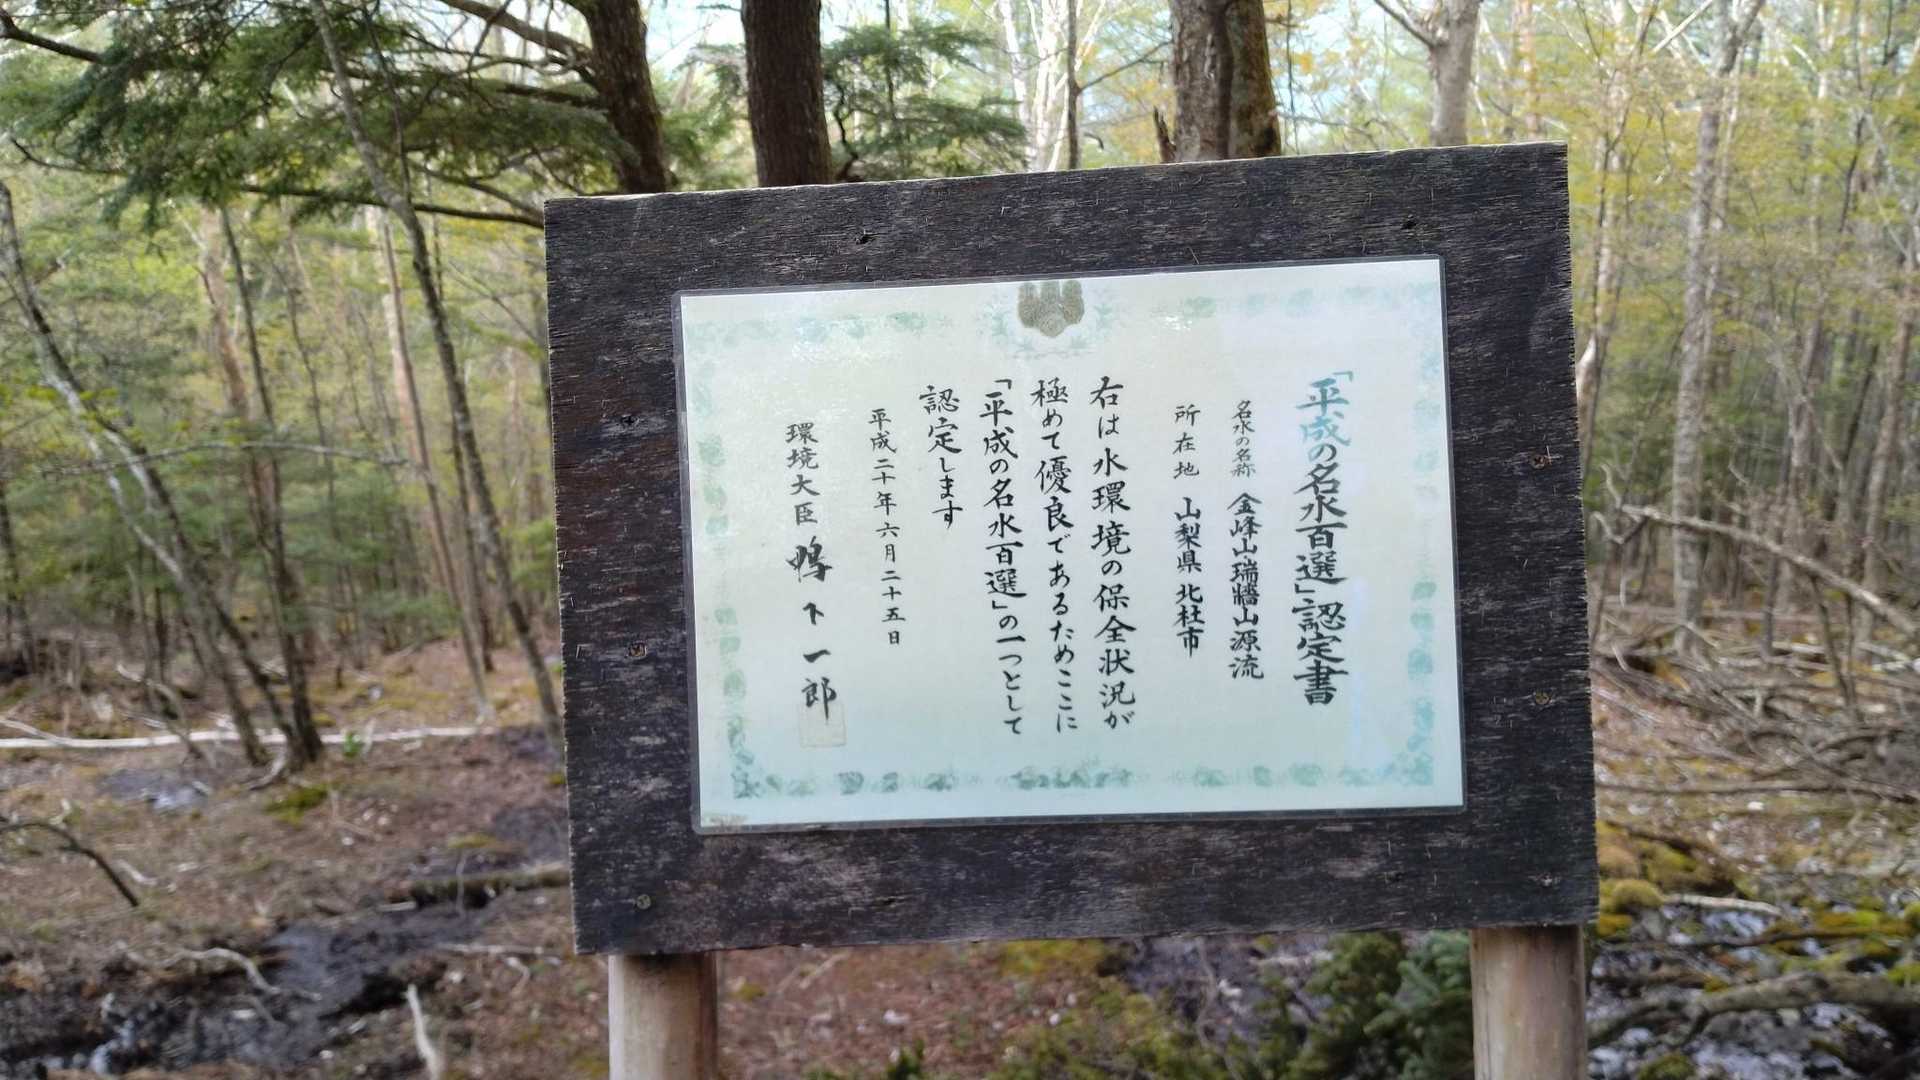 「平成の名水百選」認定書
名水の名称 金峰山瑞牆山源流
所在地 山梨県 北杜市
右は水環境の保全状況が
極めて優良であるためここに
「平成の名水百選」の一つとして
認定します
平成二十年六月二十五日
環境大臣 鴨下一郎